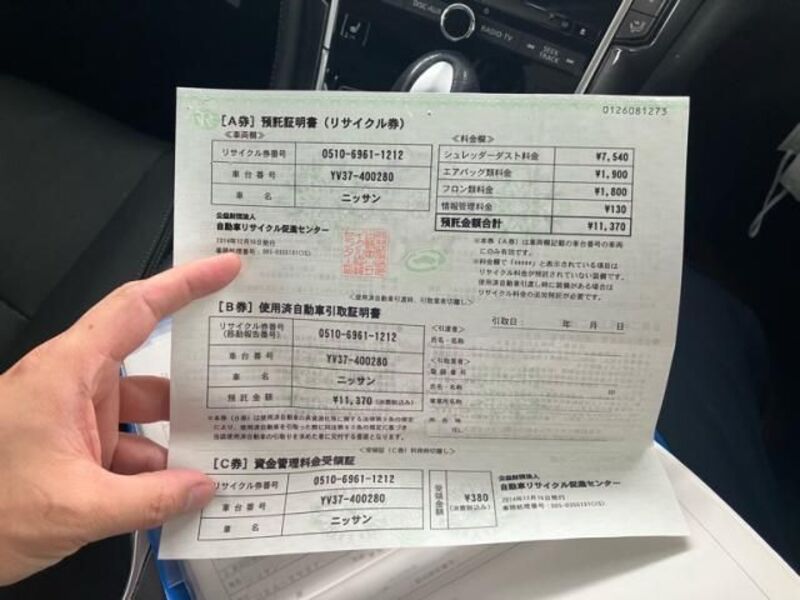 DISC·AUX
RADIO TV
SEEK
TRACK
0126081273
[A券] 預託証明書 (リサイクル券)
<車両欄>
リサイクル券番号 0510-6961-1212
車台番号 YV37-400280
車 名 ニッサン
<料金欄>
シュレッダーダスト料金 ¥7,540
エアバッグ類料金 ¥1,900
フロン類料金 ¥1,800
情報管理料金 ¥130
預託金額合計 ¥11,370
公益財団法人
自動車リサイクル促進センター
2014年12月16日発行
※本券(A券)は車両欄記載の車台番号の車両
にのみ有効です。
※料金欄で「*****」と表示されている項目は
リサイクル料金が預託されていない装備です。
使用済自動車引渡し時に装備がある場合は
リサイクル料金の追加預託が必要です。
<使用済自動車引渡時、引取業者切離し>
[B券] 使用済自動車引取証明書
引取日: 年 月 日
リサイクル券番号
(移動報告番号) 0510-6961-1212
車台番号 YV37-400280
車 名 ニッサン
預託金額 ¥11,370 (消費税込み)
<引渡者>
氏名・名称
<引取業者>
登録番号
氏名・名称 印
事業所名称
所在地
TEL
[C券] 資金管理料金受領証
リサイクル券番号 0510-6961-1212
車台番号 YV37-400280
車 名 ニッサン
受領金額 ¥380
(消費税込み)
公益財団法人
自動車リサイクル促進センター
2014年12月16日発行